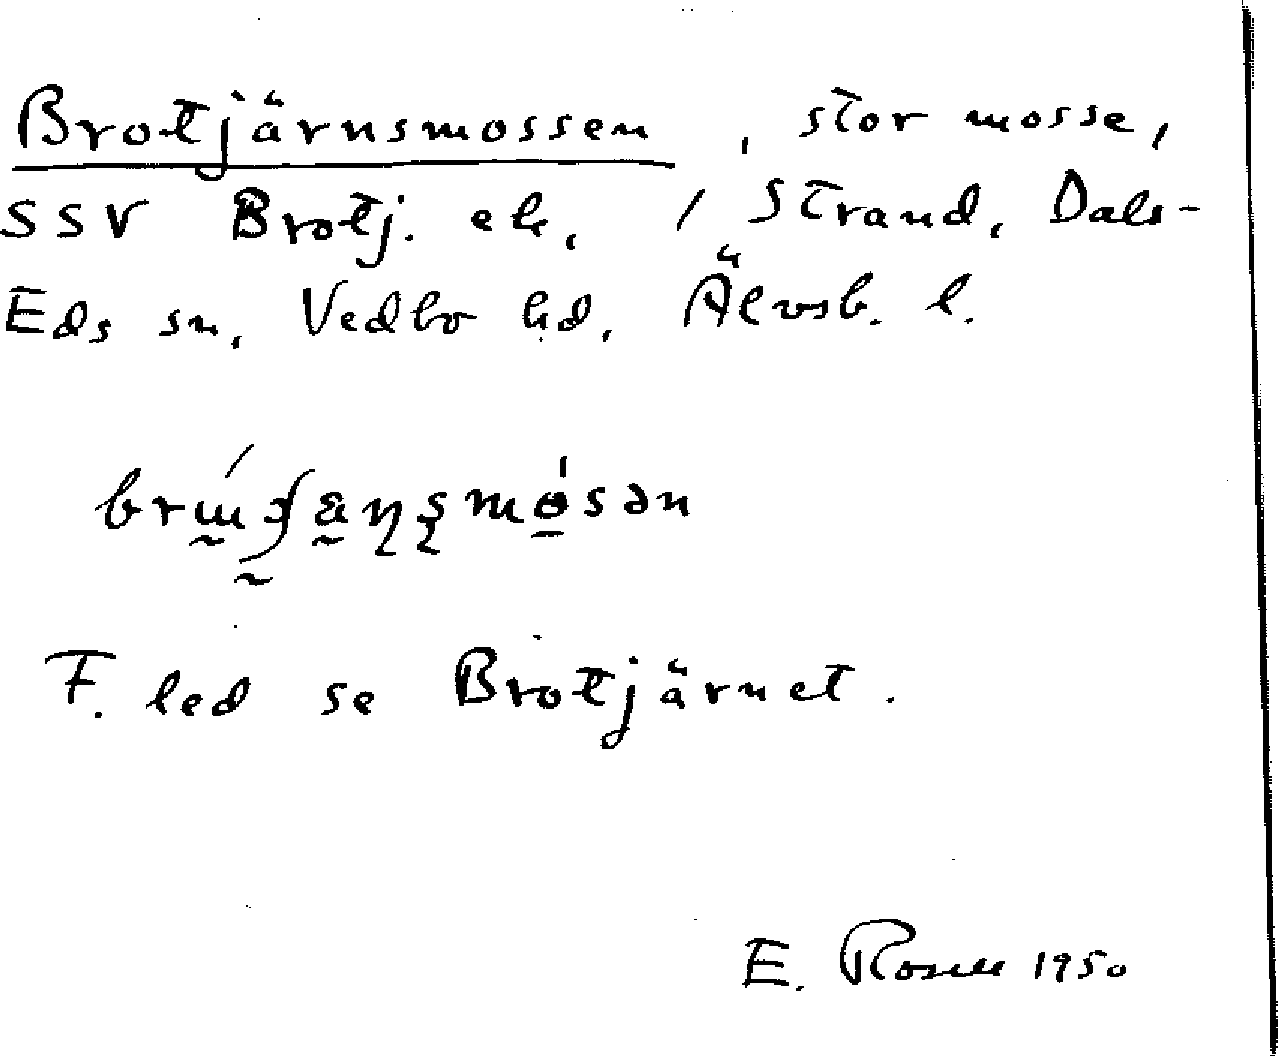 Brotjärnsmossen, stor mosse,
SSV Brotj. ek., / Strand, Dals-
Eds sn, Vedbo hd, Älvsb. l.
F. led se Brotjärnet.
E. Rosell 1950